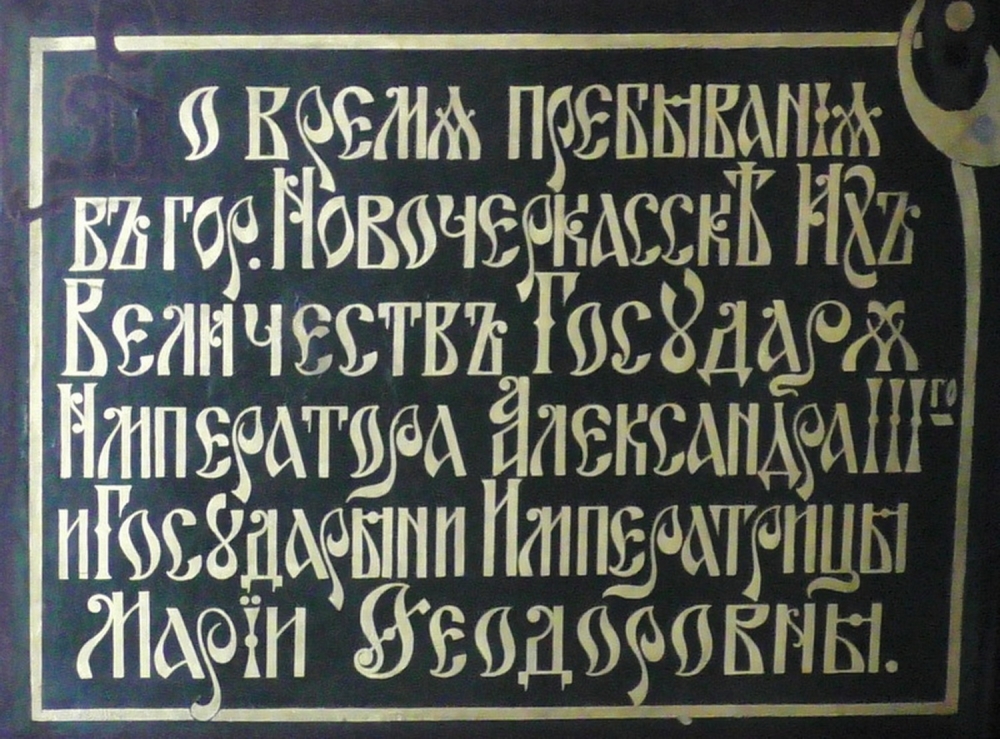 О время пребыванія
въ гор. Новочеркасскѣ Ихъ
Величествъ Государя
Императора Александра III го
и Государыни Императрицы
Маріи Ѳеодоровны.